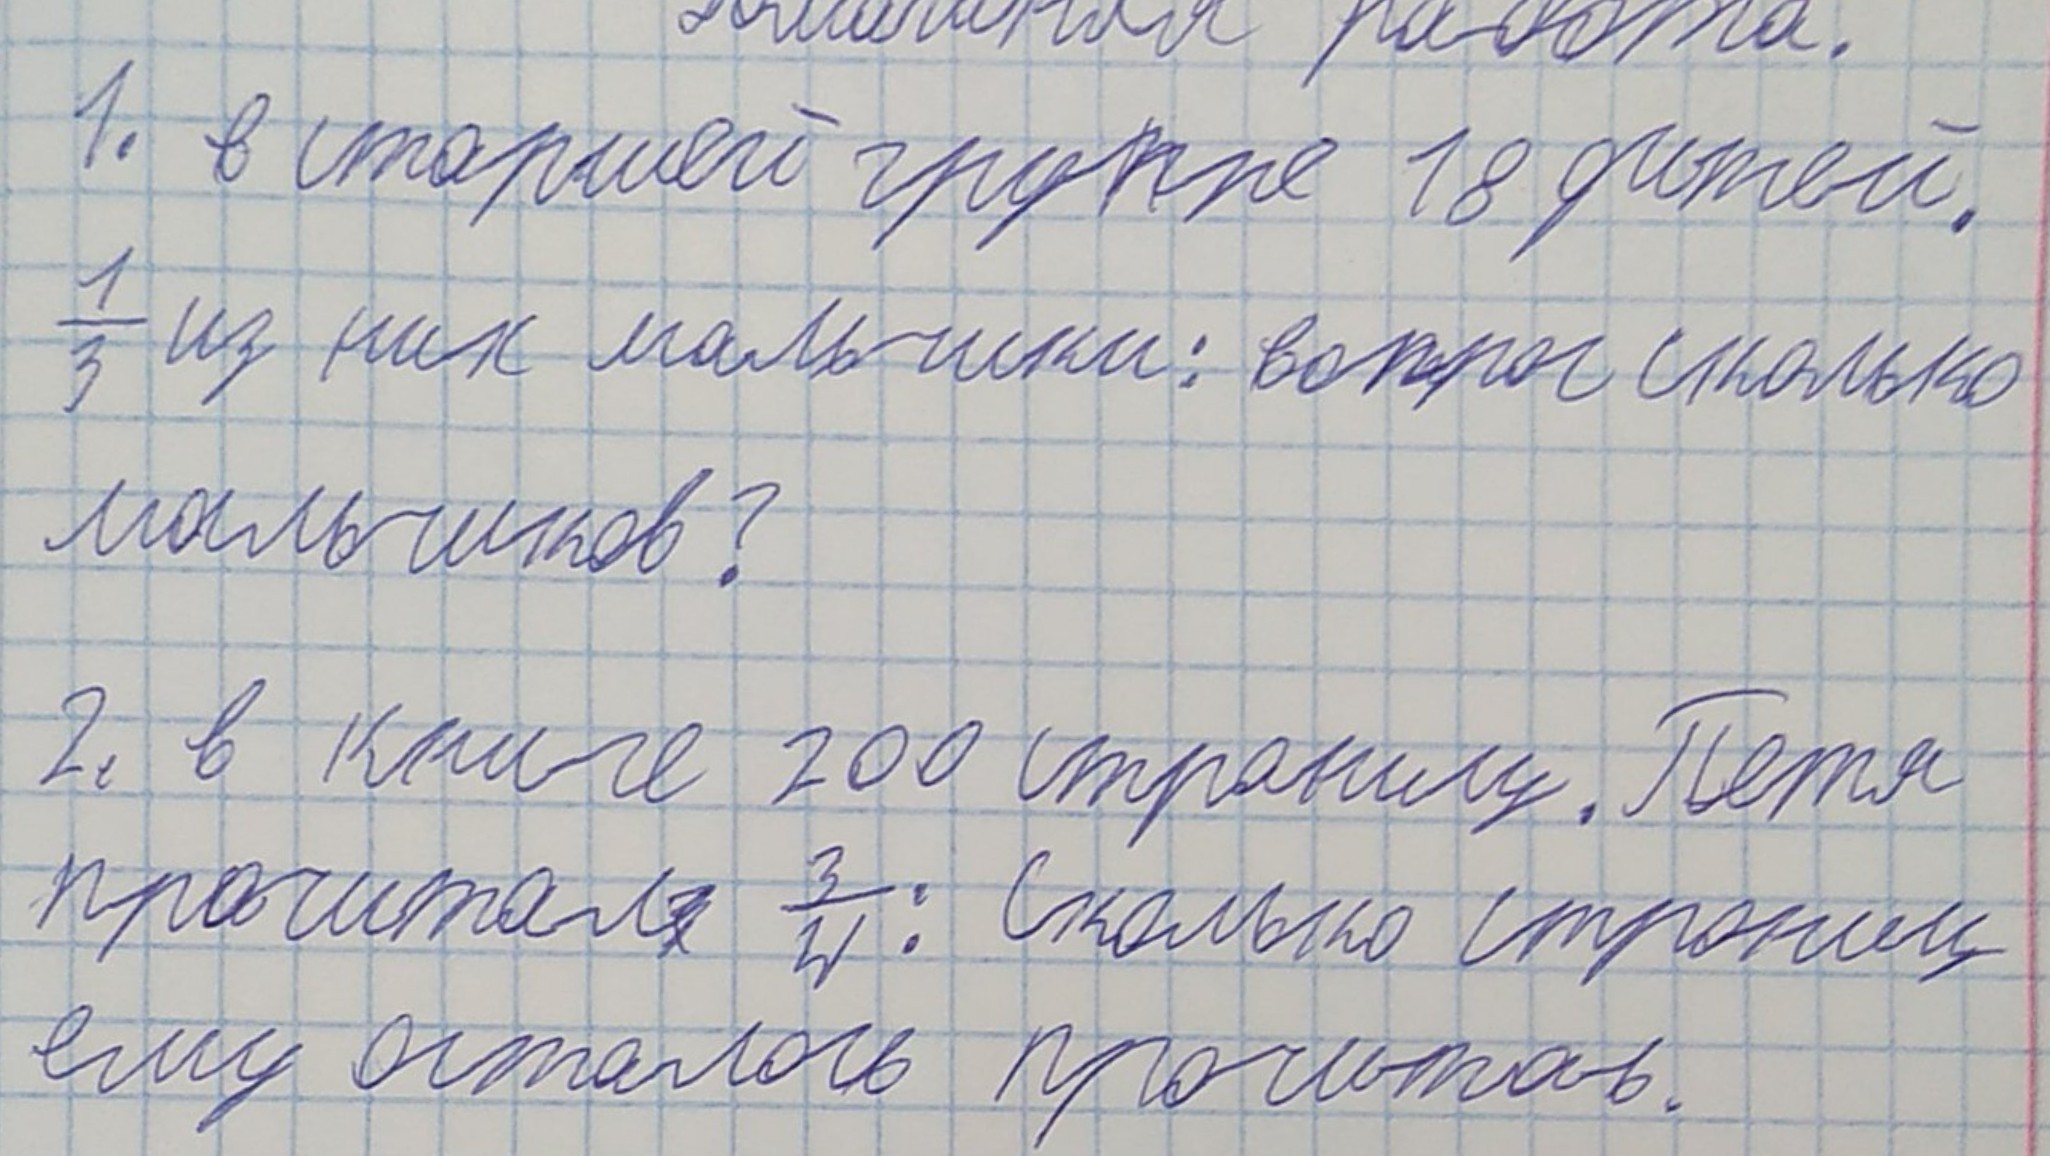 Домашняя работа.
1. в старшей группе 18 дитей.
1/3 из них мальчики: вопрос сколько
мальчиков?
2. в книге 200 страниц. Петя
прочитал 3/4: Сколько страниц
ему осталось прочитаь.